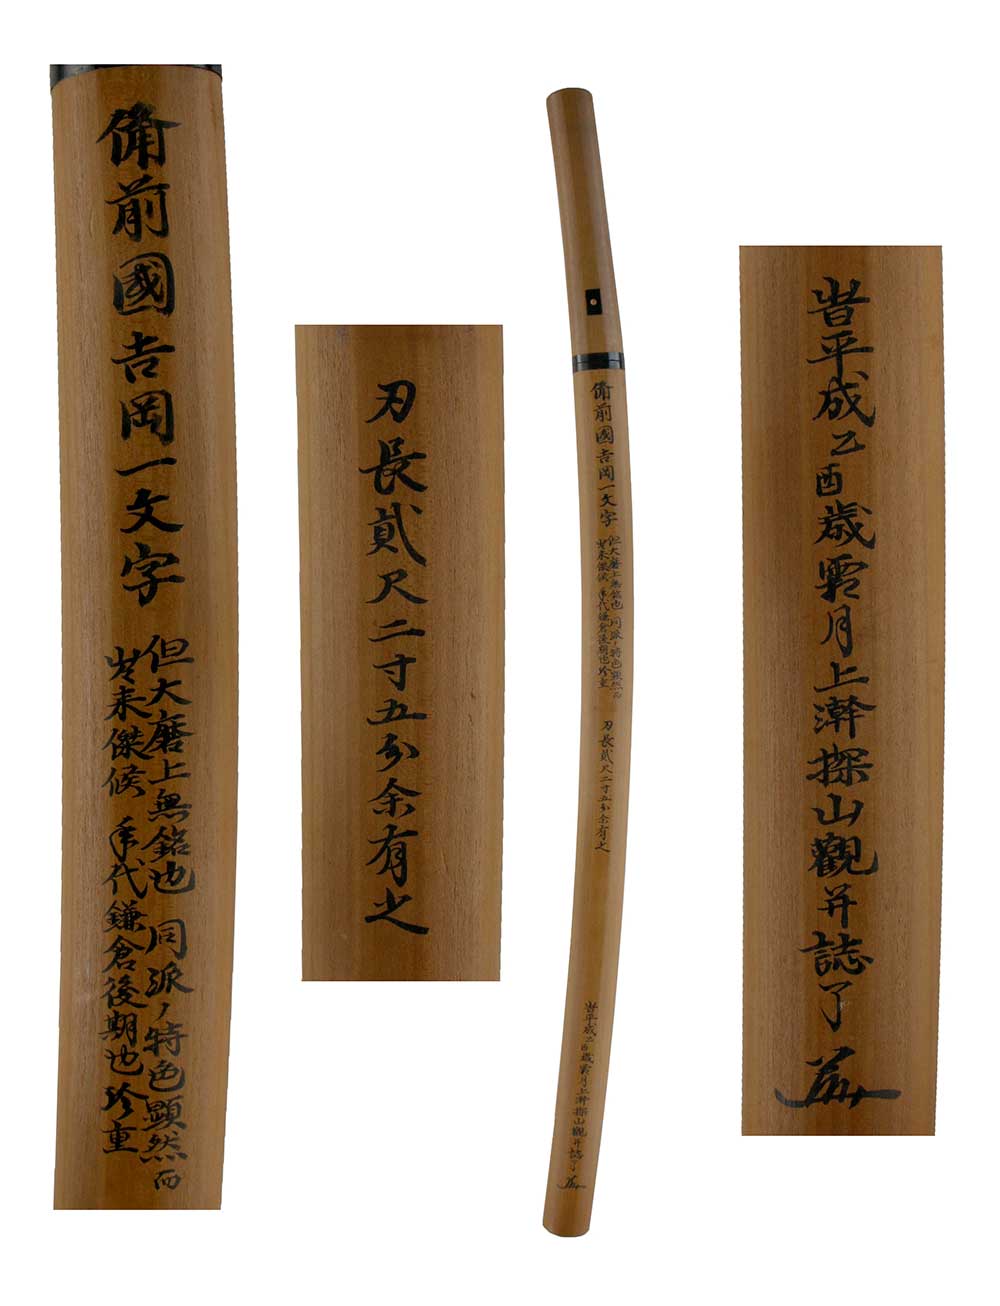 備前國吉岡一文字
但大磨上無銘也 同派ノ特色顕然而
出来傑候 年代鎌倉後期也珍重
刃長貳尺二寸五分余有之
備前國吉岡一文字
但大磨上無銘也 同派ノ特色顕然而
出来傑候 年代鎌倉後期也珍重
刃長貳尺二寸五分余有之
旹平成乙酉歳霜月上澣探山觀并誌了
旹平成乙酉歳霜月上澣探山觀并誌了